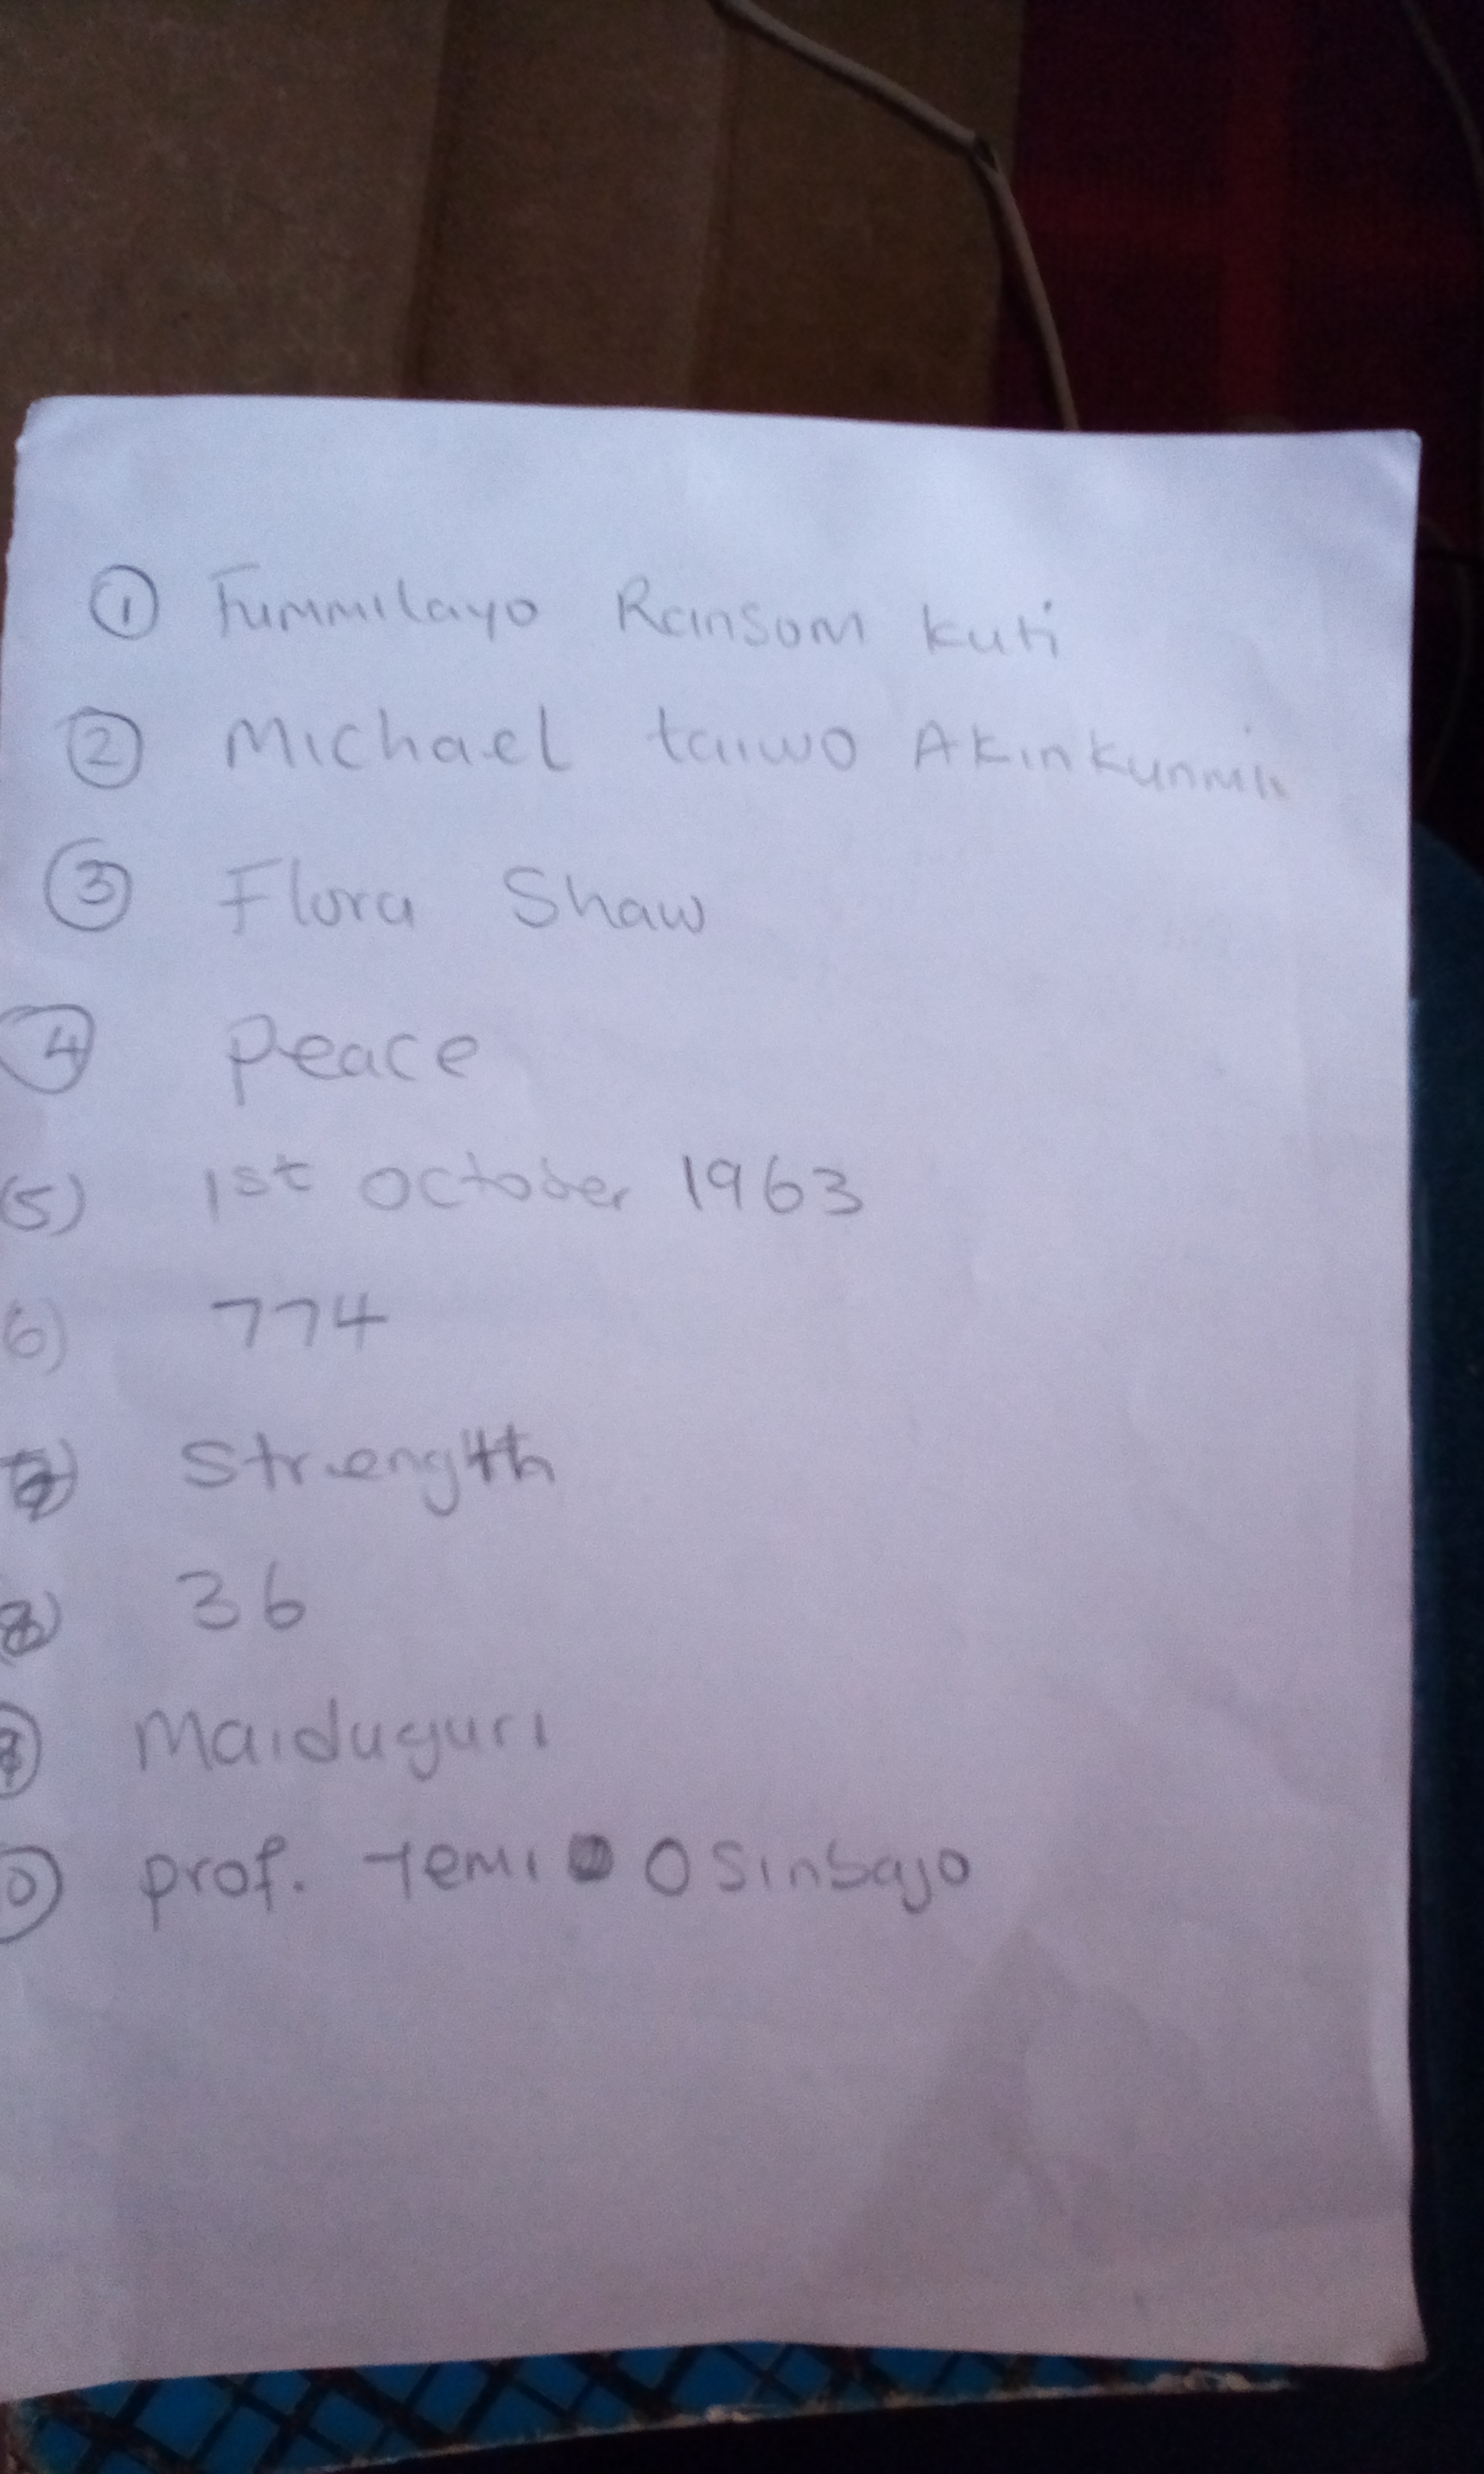 ① Fummilayo Ransom Kuti
② Michael taiwo Akinkunmi
③ Flora Shaw
④ Peace
(5) 1st October 1963
6) 774
7) Strength
8) 36
9) Maiduguri
0) prof. Yemi Osinbajo